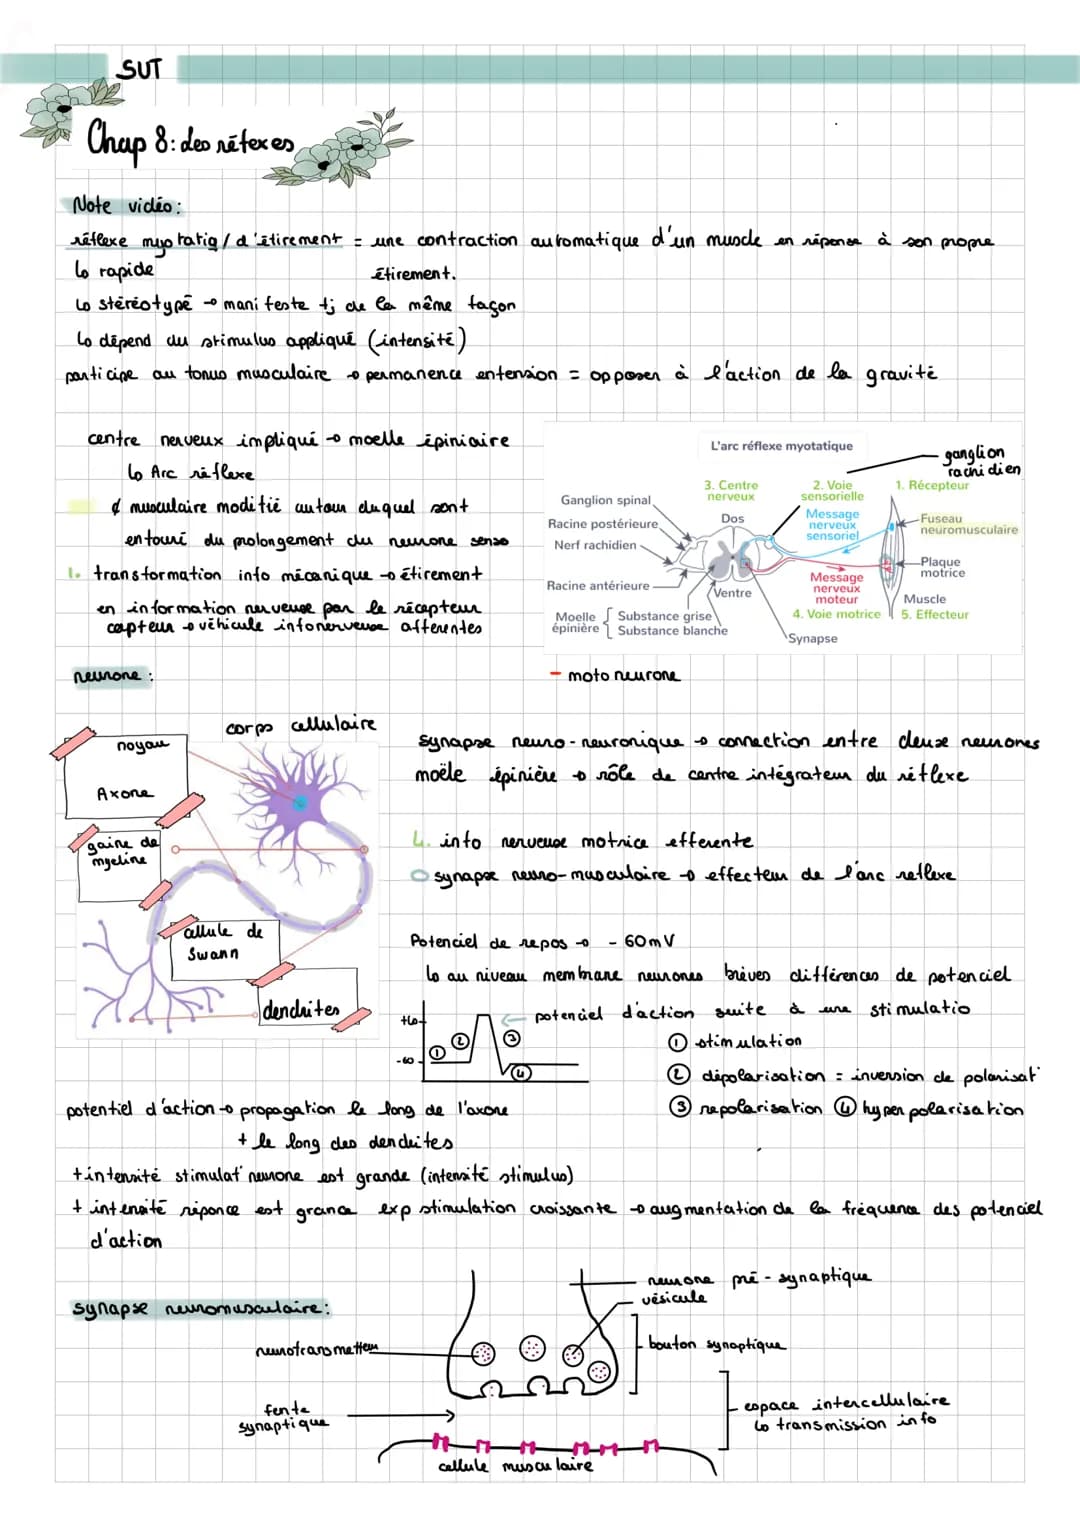 SVT
Chap 8: les réflexes
Note vidéo:
réflexe myotatiq / d'étirement = une contraction automatique d'un muscle en réponse à son propre
étirement.
↳ rapide
↳ stéréotypé → manifeste tj de la même façon
↳ dépend du stimulus appliqué (intensité)
participe au tonus musculaire → permanence entension = opposer à l'action de la gravité
centre nerveux impliqué → moelle épiniaire
↳ Arc réflexe
¢ musculaire modifié autour duquel sont
entouré du prolongement du neurone senso
1. transformation info mécanique → étirement
en information nerveuse par le récepteur
capteur → véhicule infonerveuse afferentes
L'arc réflexe myotatique
ganglion
rachidien
3. Centre
nerveux
2. Voie
sensorielle
1. Récepteur
Ganglion spinal
Racine postérieure
Nerf rachidien
Racine antérieure
Dos
Ventre
Message
nerveux
sensoriel
Fuseau
neuromusculaire
Plaque
motrice
Message
nerveux
moteur
Muscle
4. Voie motrice
5. Effecteur
Moelle
épinière
Substance grise
Substance blanche
Synapse
- moto neurone
neurone :
corps cellulaire
noyau
Axone
gaine de
myeline
cellule de
Swann
dendrites
synapse neuro-neuronique → connection entre deuxe neurones
moële épinière → rôle de centre intégrateur du réflexe
4. info nerveuse motrice efferente
synapse neuro-musculaire → effecteur de l'arc reflexe
Potenciel de repos → - 60mV
↳ au niveau membrane neurones brèves différences de potenciel
← potenciel d'action suite à une stimulatio
+60
-60
1 2 3 4
① stimulation
② dépolarisation = inversion de polarisat°
③ repolarisation ④ hyperpolarisation
potentiel d'action → propagation le long de l'axone
+ le long des dendrites
+ intensité stimulat° neurone est grande (intensité stimulus)
+ intensité réponce est grance exp stimulation croissante → augmentation de la fréquence des potenciel
d'action
synapse neuromusculaire:
neurone pré-synaptique
vésicule
neurotransmetteur
bouton synaptique
fente
synaptique
espace intercellulaire
↳ transmission info
cellule musculaire